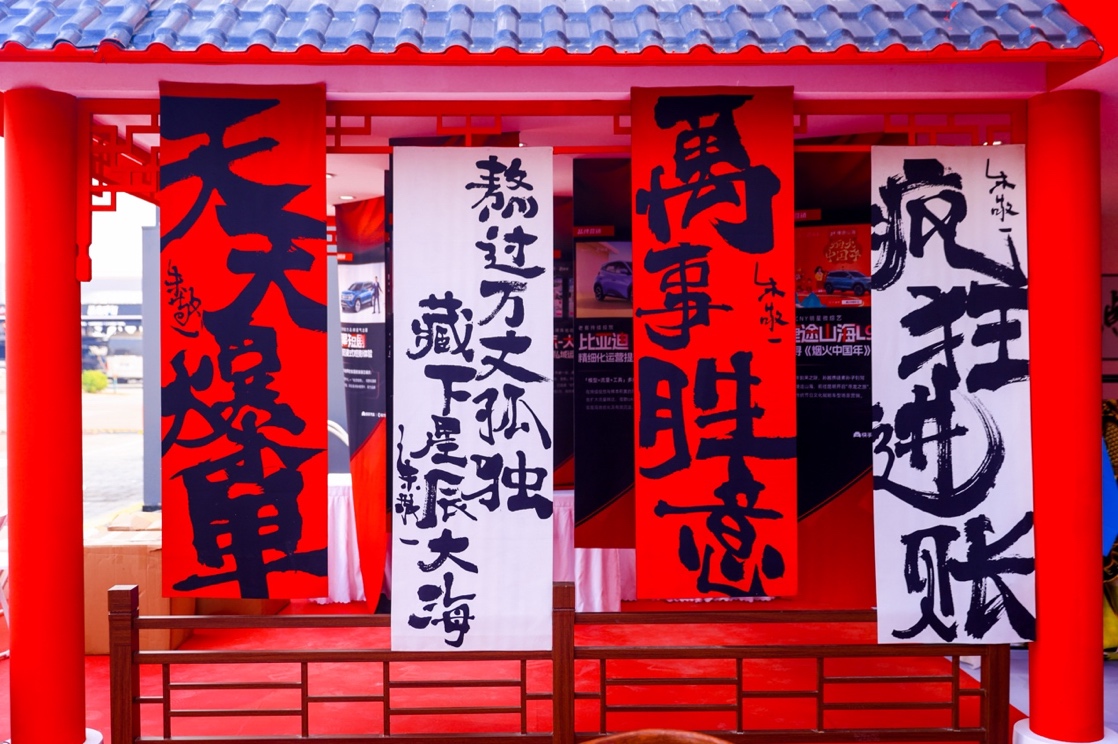 天天爆单
朱敬一
熬过万丈孤独
藏下星辰大海
朱敬一
萬事胜意
朱敬一
疯狂进账
朱敬一
比亚迪
精细化运营提
途山海L9
《烟火中国年》